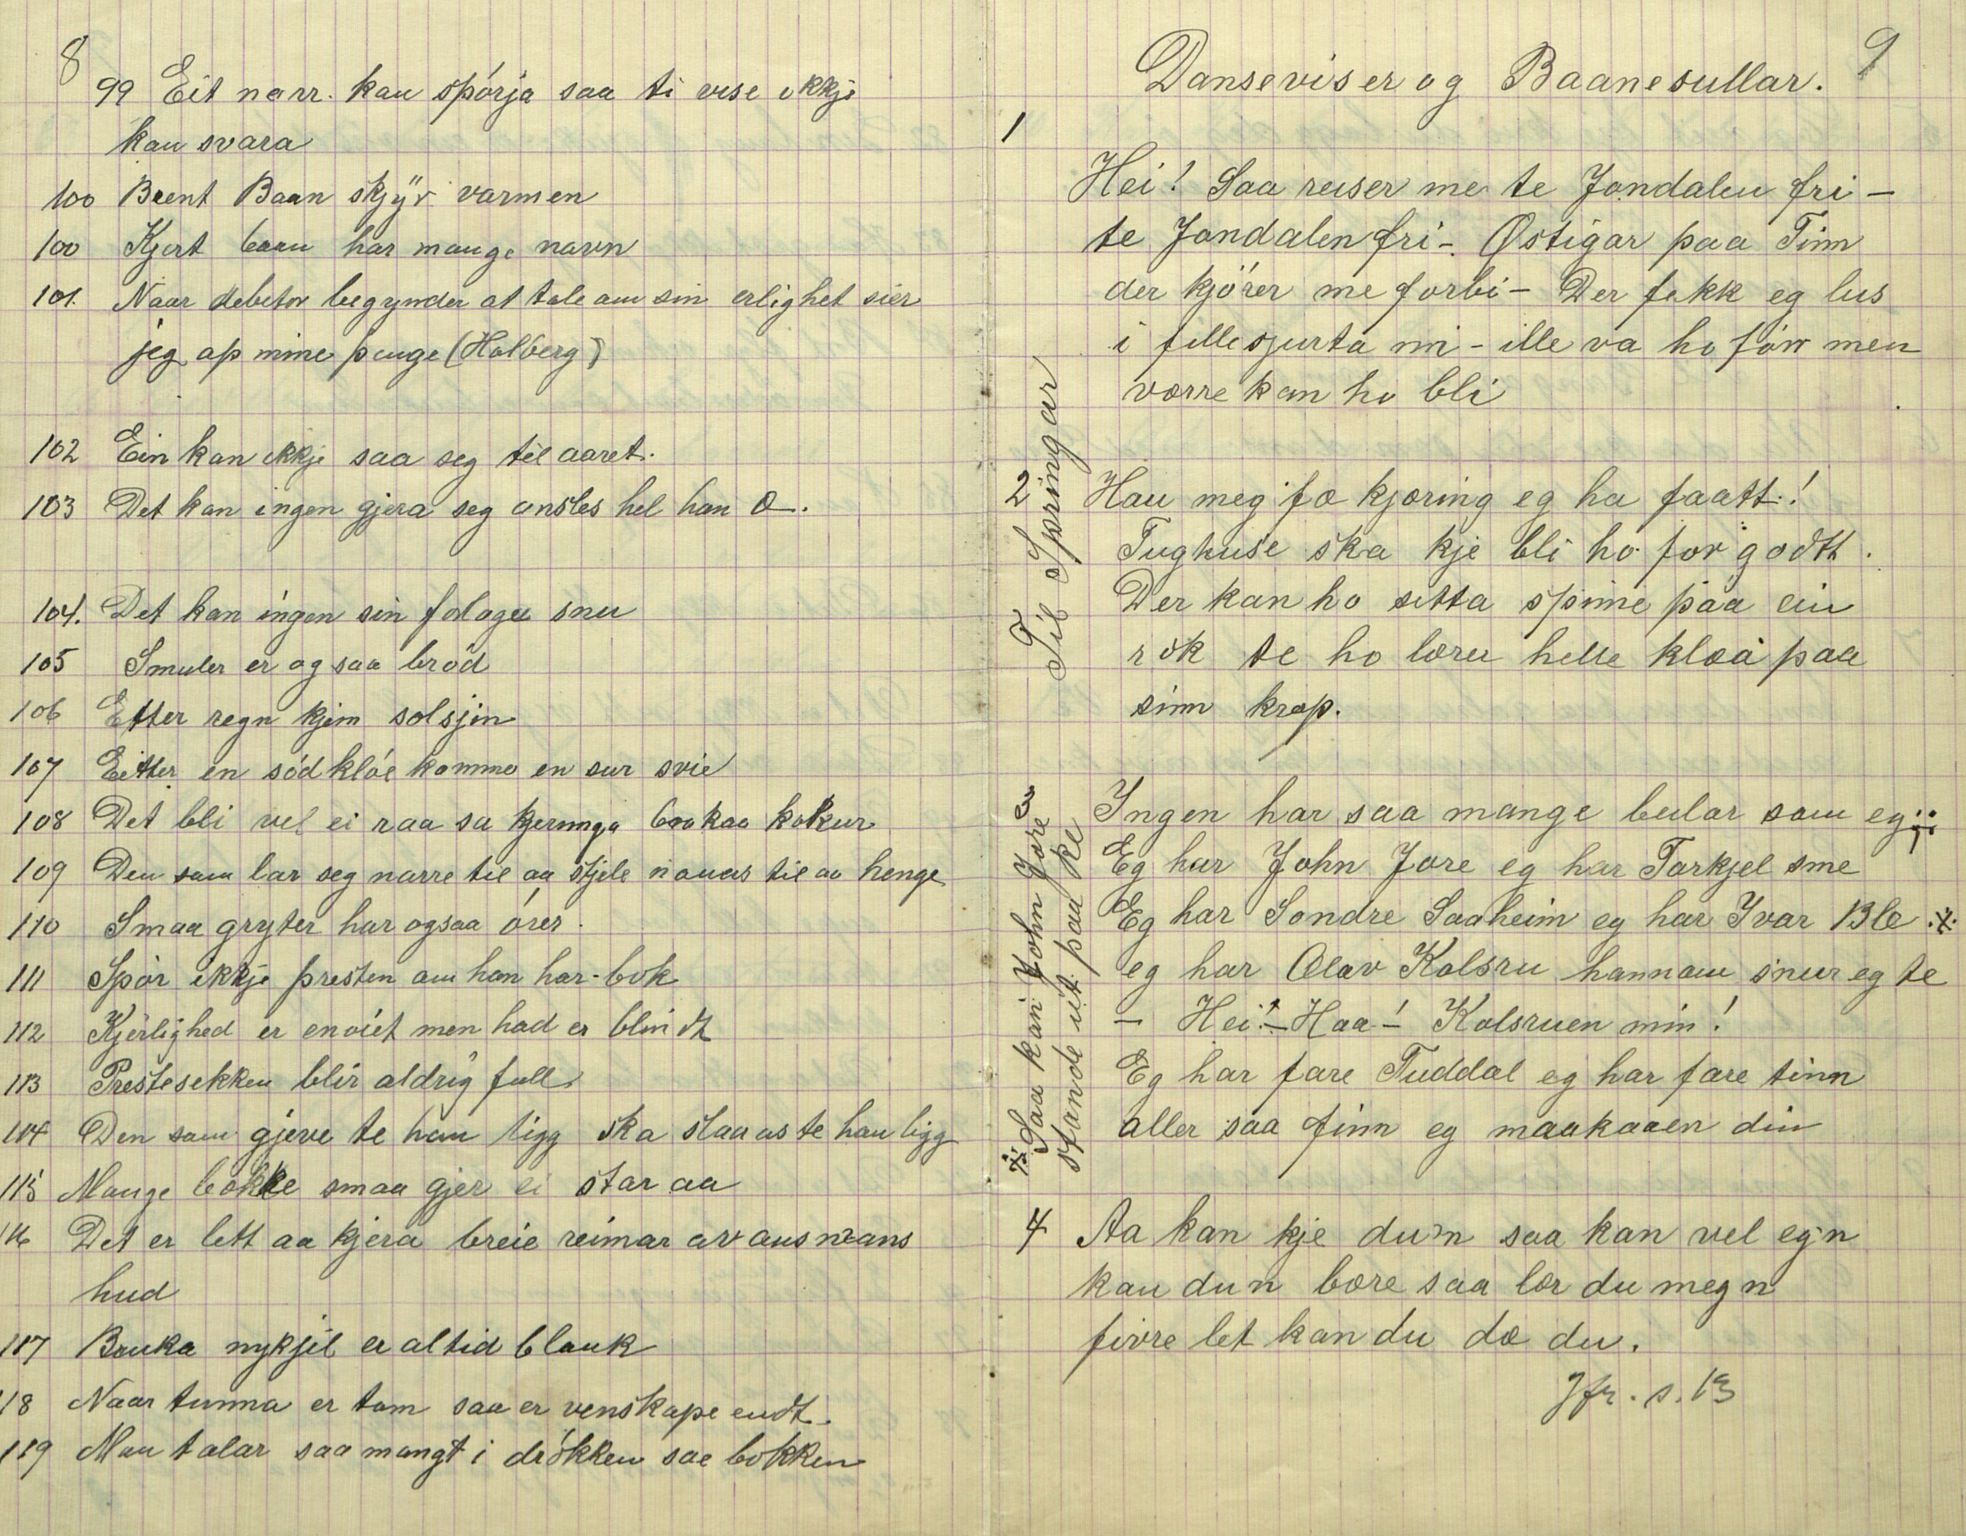 8
99 Eit narr kan spórja saa ti vise ikkje
kan svara
100 Brent Baan skyr varmen
100 Kjert baan har mange navn
101. Naar debetor begynder at tale om sin erlighet sier
jeg op mine penge (Holberg)
102 Ein kan ikkje saa seg til aaret.
103 Det kan ingen gjera seg ansles hel han æ.
104. Det kan ingen sin folage snu
105 Smuler er og saa bród
106 Etter regn kjem solsjin
107 Eitter en sód klóe komme en sur svie
108 Det bli vel ei raa sa kjeringa baa kaa kokur
109 Den som lar seg narre til aa stjele naues til aa henge
110 Smaa gryter har ogsaa órer.
111 Spór ikkje presten om han har - bok
112 Kjerlighed er envíet men had er blindt
113 Prestesekken blir aldrig full
114 Den som gjeve te han ligg ska slaaas te han ligg
115 Mange bekke smaa gjer ei star aa
116 Det er lett aa kjera breie reimar av ans mans
hud
117 Bruka nykjil er altid blank
118 Naar tunna er tom saa er venskape endt.
119 Man talar saa mangt i drókken sae bokken
9
Danseviser og Baanesullar.
1
Hei! Saa reiser me te Jondalen fri -
te Jondalen fri -. Østigar paa Tinn
der kjörer me forbi - Der fekk eg lus
i fillesjurta mi - ille va ho fórr men
værre kan ho bli
Til Springar
2 Hau meg fo kjæring eg ha faatt!
Tughuse ska kje bli ho for godtt.
Der kan ho sitta spinne paa ein
rok te ho lærer helle klæa paa
sinn krop.
3 Ingen har saa mange beilar som eg
Eg har John Jore eg har Tarkjel sme
Eg har Sondre Saaheim eg har Ivar Ble ·/.
eg har Olav Kolsru hannom snur eg te
- Hei! - Haa! - Kolsruen min!
Eg har fare Tuddal eg har fare tinn
aller saa finn eg maakaaen din
·/. Saa kan John Jore
stande ut paa ke
4 Aa kan kje du'n saa kan vel eg'n
kan du n bære saa lær du meg n
fivre let kan du dæ du.
Jfr. s. 13